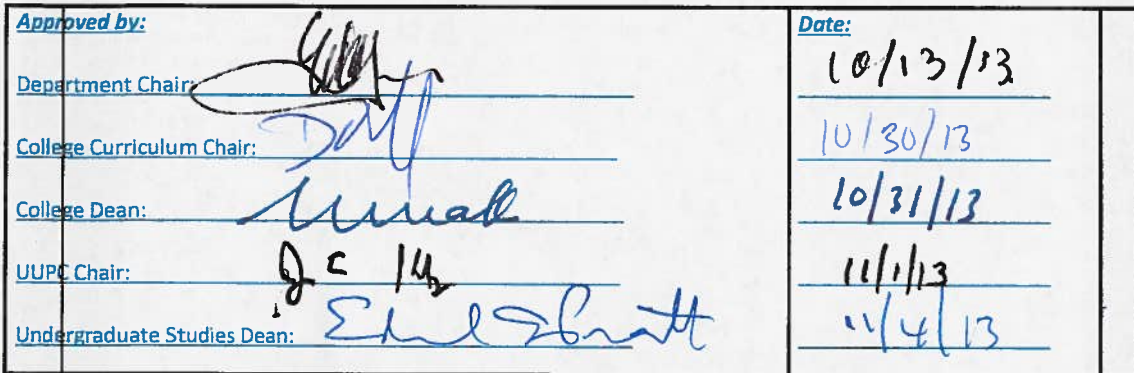 Approved by: Date:
Department Chair: 10/13/13
College Curriculum Chair: 10/30/13
College Dean: 10/31/13
UUPC Chair: 11/1/13
Undergraduate Studies Dean: 11/4/13